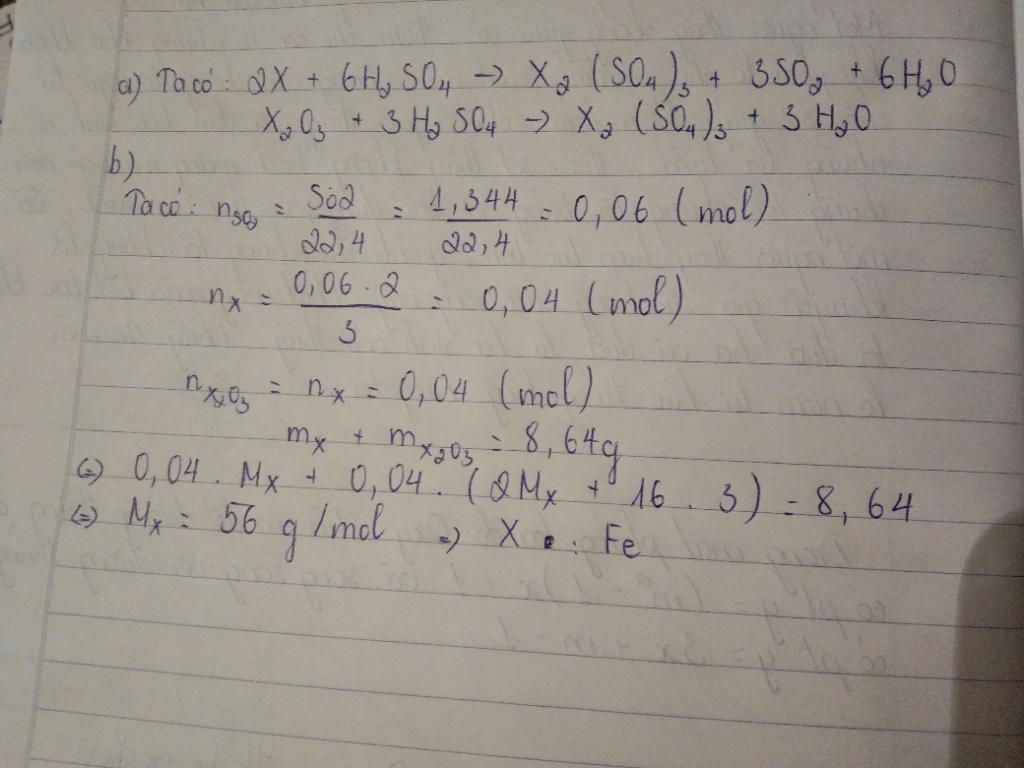 a) Ta có : 2X + 6H₂SO₄ → X₂(SO₄)₃ + 3SO₂ + 6H₂O
X₂O₃ + 3H₂SO₄ → X₂(SO₄)₃ + 3H₂O
b)
Ta có : nSO₂ = SO2/22,4 = 1,344/22,4 = 0,06 (mol)
nX = 0,06 . 2/3 = 0,04 (mol)
nX₂O₃ = nX = 0,04 (mol)
mX + mX₂O₃ = 8,64g
(=) 0,04 . MX + 0,04 . (2MX + 16 . 3) = 8,64
(=) MX = 56 g/mol => X : Fe